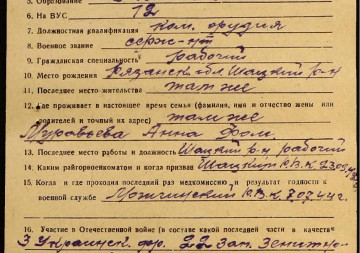 5. Образование
6. На ВУС 12
7. Должностная квалификация ком. орудия
8. Военное звание серж-нт
9. Гражданская специальность рабочий
10. Место рождения Рязанск. обл. Шацкий р-н
11. Последнее место жительства там же
12. Где проживает в настоящее время семья (фамилия, имя и отчество жены или
родителей и точный их адрес) там же
Муравьева Анна
13. Последнее место работы и должность Шацкий р-н рабочий
14. Каким райгорвоенкоматом и когда призван Шацким Р.В.К.
15. Когда и где проходил последний раз медкомиссию и результат годности к
военной службе Р.В.К.
16. Участие в Отечественной войне (в составе какой последней части в качестве
3 Украинск. фр. 22 зап. Зенитно-